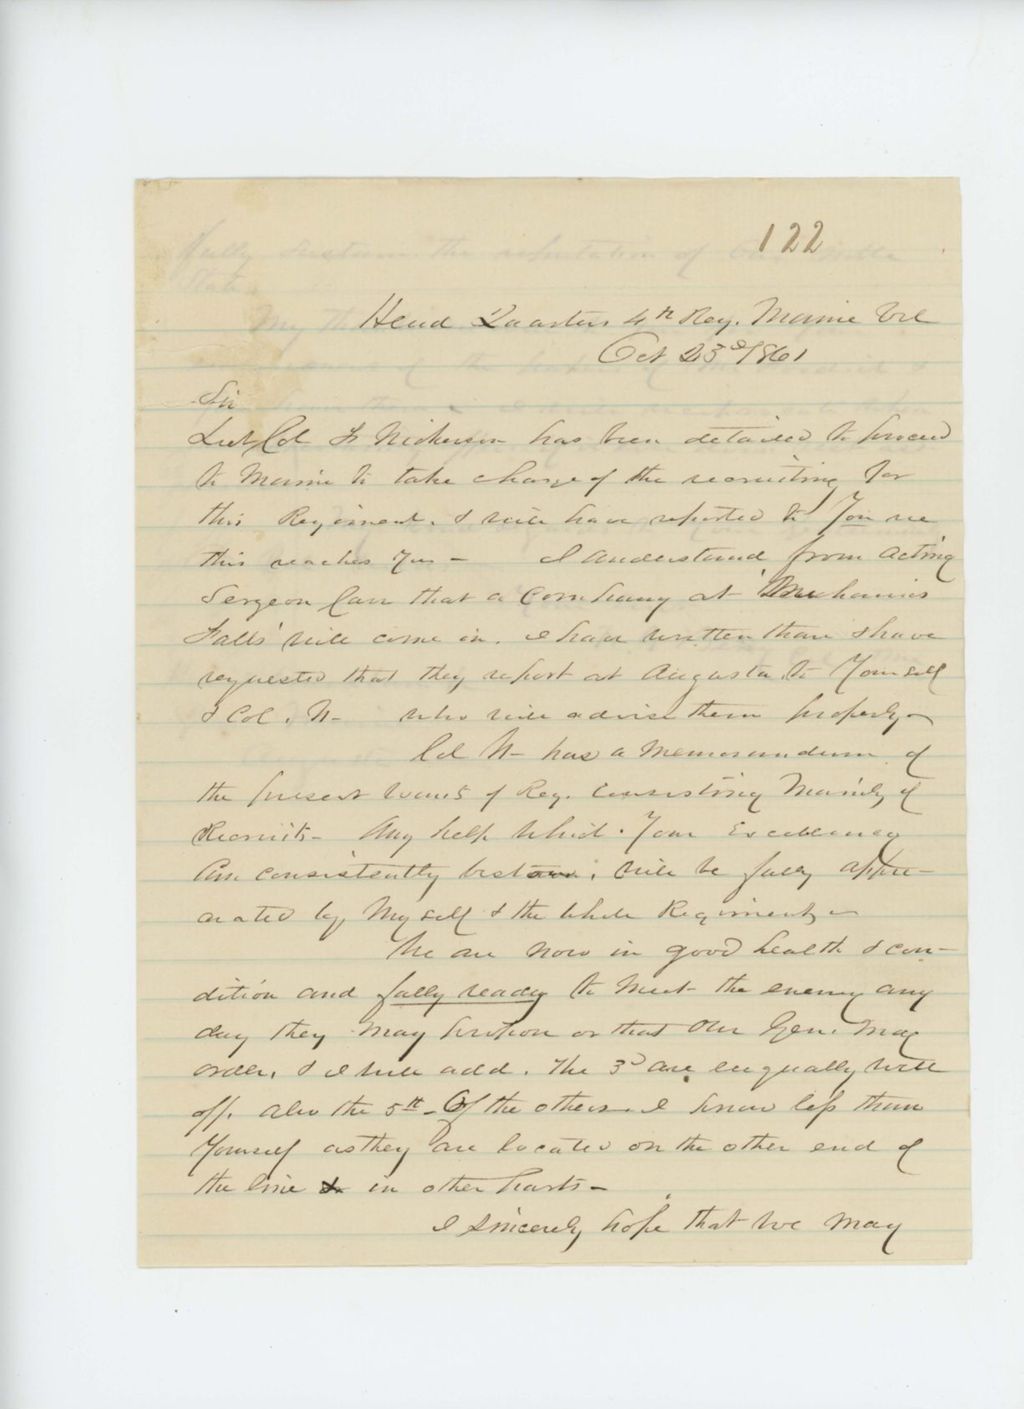 122
Head Quarters 4th Reg. Maine Vol
Oct 23d 1861
Sir
Lieut Col F Nickerson has been detailed to proceed
to Maine to take charge of the recruiting for
this Regiment. & will have reported to You ere
this reaches You - I understand from Acting
Sergeon Carr that a Company at 'Mechanics
Falls' will come in. I have written them & have
requested that they report at Augusta to Yourself
& Col. N- who will advise them properly -
Col N- has a Memorandum of
the present wants of Reg. Consisting Mainly of
Recruits - Any help which Your Excellency
Can consistently bestow, will be fully appre-
ciated by Myself & the whole Regiment -
We are now in good health & con-
dition and fully ready to Meet the enemy any
day they May or that Our Gen. May
order, & I will add. The 3d are equally well
off. Also the 5th - Of the others I know less than
Yourself as they are located on the other end of
the line & in other parts -
I Sincerely hope that we May